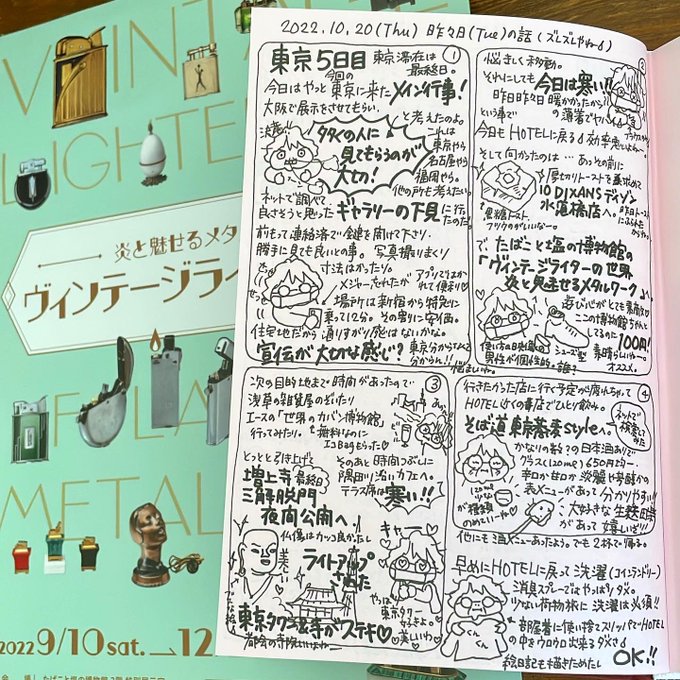 VINTAGE
LIGHTE
炎と魅せるメタ
ヴィンテージライ
OF
METAL
2022 9/10 sat. → 12
2022.10.20(Thu) 昨々日(Tue)の話(ズレズレやねん)
①
東京5日目 東京滞在は
最終日。
今日はやっと今回の東京に来たメイン行事!
大阪で展示をさせてもらい、
と考えたのよ。
多くの人に
見てもらうのが
大切!
これは
東京やら
名古屋やら
福岡やら。
他の所も考えたい。
ネットで調べて、
良さそうと思ったギャラリーの下見に行
ったのだ。
前もって連絡済で鍵を開けて下さり、
勝手に見ても良いとの事。写真撮りまくり
寸法はかったり。
メジャー忘れたが
アプリではか
れて便利♡
場所は新宿から特急に
乗って12分。その割りに安価。
住宅地だから通りすがり感はないかな。
宣伝が大切な感じ?
東京分からなくて
分からん!!
悩ましいわ。
②
悩ましく移動。
それにしても今日は寒い!!
昨日昨々日暖かかったから
の薄着でヤバイ
という事で
今日もHOTELに戻る
効率悪いよねー。
そして向かったのは…あっその前に
厚切りトーストを求めて
10 DIXANS ディゾン
水道橋店へ。
昨日トースト
黒糖トースト。
フツウのがいいなー。
で、たばこと塩の博物館の
「ヴィンテージライターの世界
炎と魅せるメタルワーク」へ。
遊び心がとても素敵♡
ここの博物館ちゃんと
してるのに
100円!
素晴らしいわー。
オススメ。
シューズ型
男性が個性的。誰?
③
次の目的地まで時間があったので
浅草の雑貨屋のぞいたり
エースの「世界のカバン博物館」
行ってみたり。
無料なのに
エコBagもらった♡
ビール
とっとと引き上げと
そのあと時間つぶしに
隅田川沿いカフェへ。
テラス席は寒い!!
増上寺
最終日
三解脱門
夜間公開へ。
仏像はカッコ良かったし
美
ライトアップ
された
キャー
東京タワーと寺がステキ♡
やっぱ
東京タワー
好きよ。
美しいわ
都会の寺院
④
行きたかった店に行く予定が疲れちゃって
HOTEL近くの書店でひとり飲み。
ネットで
検索して
みた
そば道 東京蕎麦styleへ。
かなりの数?の日本酒ありで
グラス(120ml)650円均一。
辛口か甘口か 淡麗や芳醇かの
表メニューがあって分かりやすい!!
120ml
少なめ
が種類
のめていい
大好きな生麩田楽
があって嬉しいばり!
他にも酒メニューあったよう。でも2杯で帰る。
早めにHOTELに戻って洗濯(コインランドリー)
消臭スプレーではやっぱりダメ。
少ない荷物旅に洗濯は必須!!
くんくん
部屋着に使い捨てスリッパでHOTEL
の中をウロウロ出来るダメさ
絵日記も描きためたし
OK!!